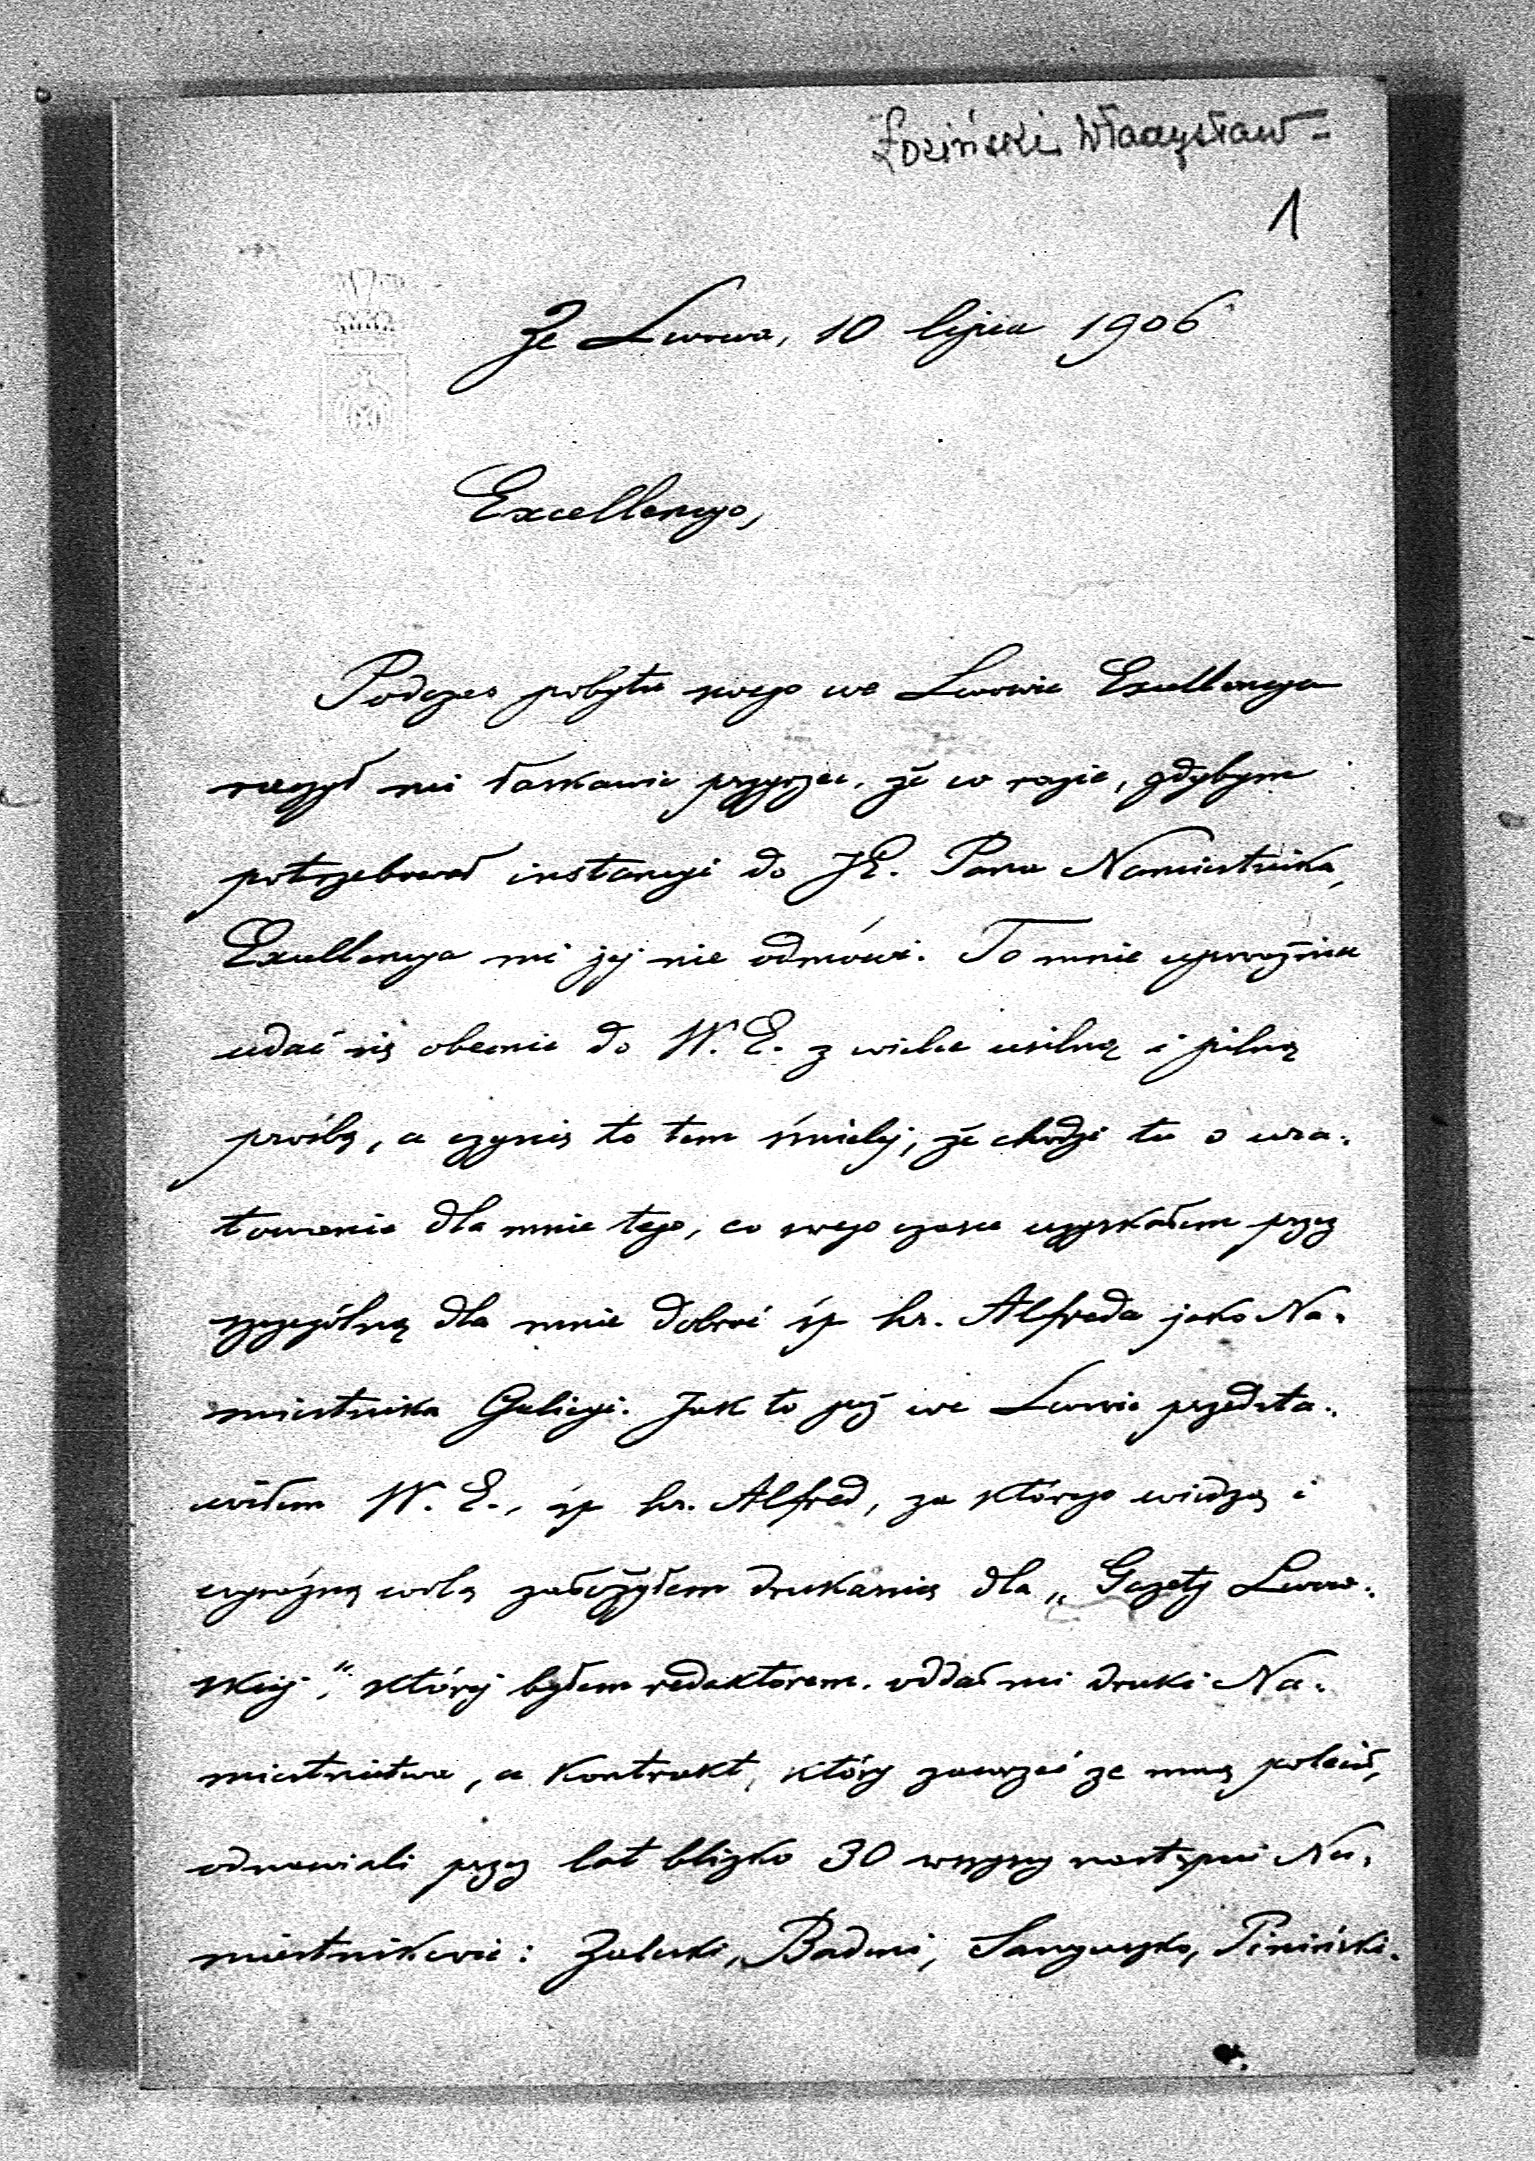 Łoziński Władysław -
1
Ze Lwowa, 10 lipca 1906
Excellencyo,
Podczas pobytu swego we Lwowie Excellencya
raczył mi łaskawie przyrzec, że w razie, gdybym
potrzebował instancyi do JE. Pana Namiestnika,
Excellencya mi jej nie odmówi. To mnie upoważnia
udać się obecnie do W. E. z wielce usilną i pilną
prośbą, a czynię to tem śmielej, że chodzi tu o ura-
towanie dla mnie tego, co swego czasu uzyskałem przez
szczególną dla mnie dobroć śp hr. Alfreda jako Na-
miestnika Galicyi. Jak to już we Lwowie przedsta-
wiłem W. E., śp hr. Alfred, za którego wiedzą i
wyraźną wolą założyłem drukarnię dla „Gazety Lwow-
skiej", której byłem redaktorem, oddał mi druki Na-
miestnictwa, a kontrakt, który zawrzeć ze mną polecił,
odnawiali przez lat blizko 30 wszyscy następni Na-
miestnikowie: Zaleski, Badeni, Sanguszko, Piniński.